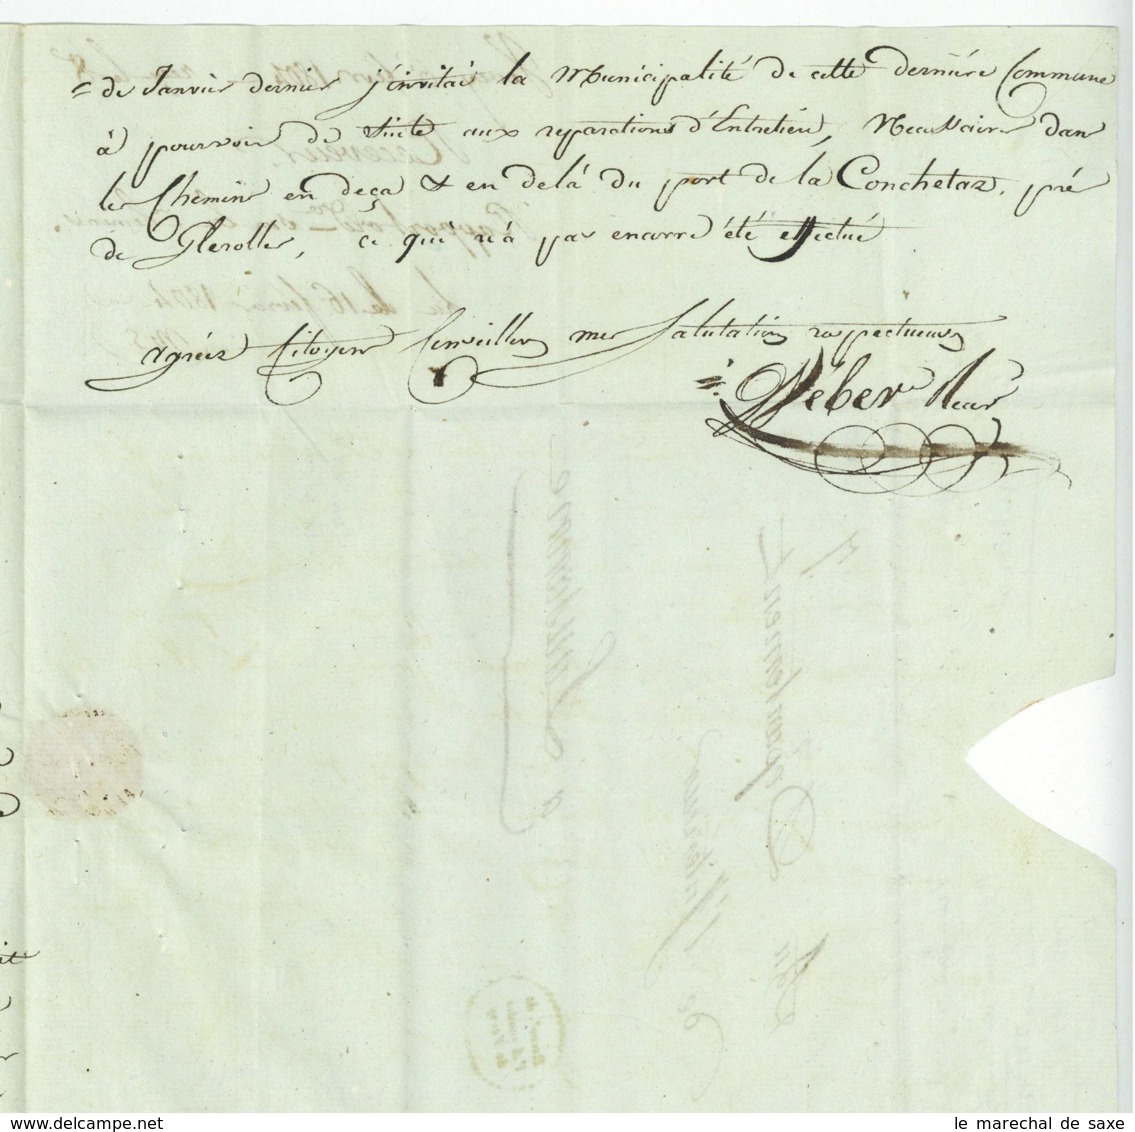 = de Janvier dernier j'invitai la Municipalité de cette derniére Commune
à pourvoir de suite aux reparations d'Entretien, Necessaires dans
les Chemins en deça & en delà du port de la Conchetaz, pré
de Glerolles, ce qui n'a pas encorre été effectué
Agréez Citoyens Conseillers mes Salutations respectueuses
Weber
Lausanne
à
Departement
de l'Interieur
du le 16 fevrier 1804
www.delcampe.net
le marechal de saxe